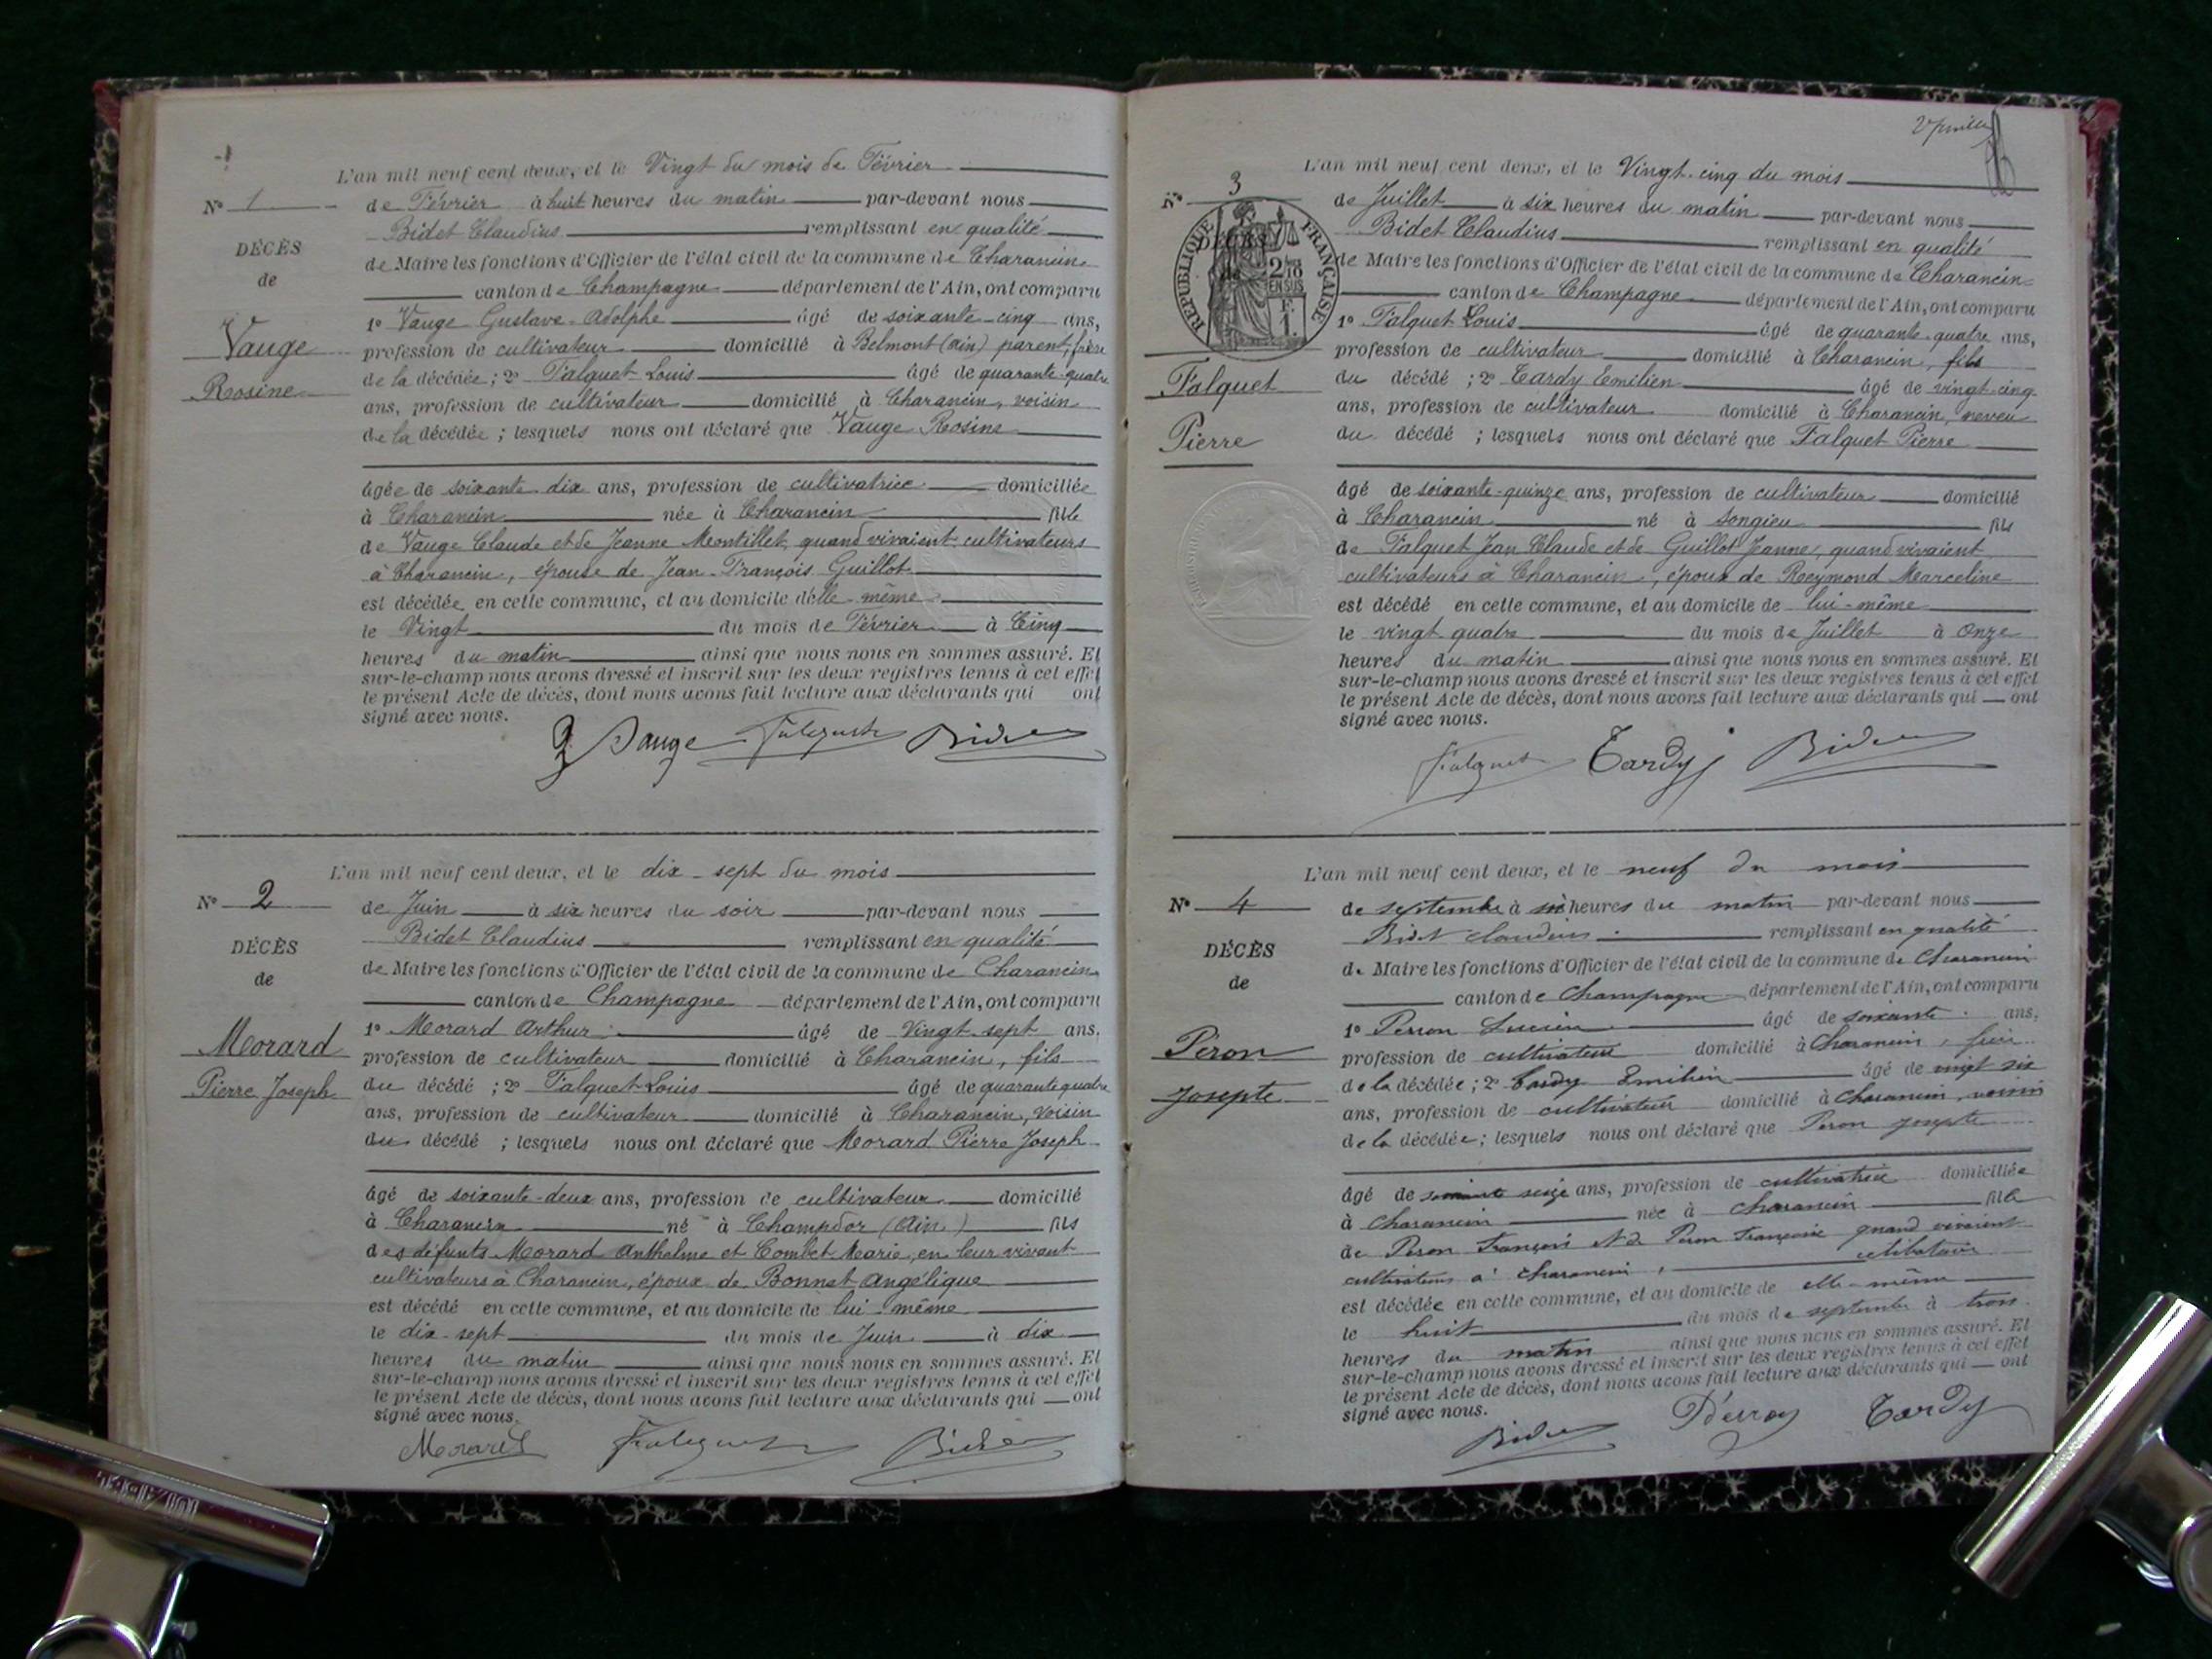 L'an mil neuf cent deux, et le Vingt du mois de Février
N° 1
de Février à huit heures du matin par-devant nous
Bidet Claudius remplissant en qualité
DÉCÈS
de Maire les fonctions d'Officier de l'état civil de la commune de Charancin
de
canton de Champagne département de l'Ain, ont comparu
1° Vauge Gustave-Adolphe âgé de soixante-cinq ans,
Vauge
profession de cultivateur domicilié à Belmont (Ain) parent, frère
de la décédée ; 2° Falquet Louis âgé de quarante-quatre
Rosine
ans, profession de cultivateur domicilié à Charancin, voisin
de la décédée ; lesquels nous ont déclaré que Vauge Rosine
âgée de soixante dix ans, profession de cultivatrice domiciliée
à Charancin née à Charancin fille
de Vauge Claude et de Jeanne Montillet, quand vivaient cultivateurs
à Charancin, épouse de Jean-François Guillot
est décédée en cette commune, et au domicile d'elle-même
le Vingt du mois de Février à Cinq
heures du matin ainsi que nous nous en sommes assuré. Et
sur-le-champ nous avons dressé et inscrit sur les deux registres tenus à cet effet
le présent Acte de décès, dont nous avons fait lecture aux déclarants qui ont
signé avec nous.
Vauge Falquet Bidet
L'an mil neuf cent deux, et le dix-sept du mois
N° 2
de Juin à six heures du soir par-devant nous
Bidet Claudius remplissant en qualité
DÉCÈS
de Maire les fonctions d'Officier de l'état civil de la commune de Charancin
de
canton de Champagne département de l'Ain, ont comparu
1° Morard Arthur âgé de Vingt-sept ans,
Morard
profession de cultivateur domicilié à Charancin, fils
Pierre Joseph
du décédé ; 2° Falquet Louis âgé de quarante quatre
ans, profession de cultivateur domicilié à Charancin, voisin
du décédé ; lesquels nous ont déclaré que Morard Pierre Joseph
âgé de soixante-deux ans, profession de cultivateur domicilié
à Charancin né à Champdor (Ain) fils
des défunts Morard Anthelme et Combet Marie, en leur vivant
cultivateurs à Charancin, époux de Bonnet Angélique
est décédé en cette commune, et au domicile de lui-même
le dix-sept du mois de Juin à dix
heures du matin ainsi que nous nous en sommes assuré. Et
sur-le-champ nous avons dressé et inscrit sur les deux registres tenus à cet effet
le présent Acte de décès, dont nous avons fait lecture aux déclarants qui ont
signé avec nous.
Morard Falquet Bidet
L'an mil neuf cent deux, et le Vingt-cinq du mois
N° 3
de Juillet à six heures du matin par-devant nous
Bidet Claudius remplissant en qualité
REPUBLIQUE FRANÇAISE
DÉCÈS
de
2/10 EN SUS
F. 1.
de Maire les fonctions d'Officier de l'état civil de la commune de Charancin
canton de Champagne département de l'Ain, ont comparu
1° Falquet Louis âgé de quarante-quatre ans,
profession de cultivateur domicilié à Charancin, fils
Falquet
du décédé ; 2° Tardy Emilien âgé de vingt-cinq
ans, profession de cultivateur domicilié à Charancin, neveu
Pierre
du décédé ; lesquels nous ont déclaré que Falquet Pierre
âgé de soixante-quinze ans, profession de cultivateur domicilié
à Charancin né à Songieu fils
de Falquet Jean Claude et de Guillot Jeanne, quand vivaient
cultivateurs à Charancin, époux de Reymond Marceline
est décédé en cette commune, et au domicile de lui-même
le vingt quatre du mois de Juillet à onze
heures du matin ainsi que nous nous en sommes assuré. Et
sur-le-champ nous avons dressé et inscrit sur les deux registres tenus à cet effet
le présent Acte de décès, dont nous avons fait lecture aux déclarants qui ont
signé avec nous.
Falquet Tardy Bidet
L'an mil neuf cent deux, et le neuf du mois
N° 4
de septembre à heures du matin par-devant nous
Bidet Claudius remplissant en qualité
DÉCÈS
de Maire les fonctions d'Officier de l'état civil de la commune de Charancin
de
canton de Champagne département de l'Ain, ont comparu
1° Perron Lucien âgé de soixante ans,
Péron
profession de cultivateur domicilié à Charancin, frère
de la décédée ; 2° Tardy Emilien âgé de vingt six
Josepte
ans, profession de cultivateur domicilié à Charancin, voisin
de la décédée ; lesquels nous ont déclaré que Péron Josepte
âgé de soixante seize ans, profession de cultivatrice domiciliée
à Charancin née à Charancin fille
de Péron François et de Péron Françoise quand vivaient
cultivateurs à Charancin, célibataire
est décédée en cette commune, et au domicile de elle-même
le huit du mois de septembre à trois
heures du matin ainsi que nous nous en sommes assuré. Et
sur-le-champ nous avons dressé et inscrit sur les deux registres tenus à cet effet
le présent Acte de décès, dont nous avons fait lecture aux déclarants qui ont
signé avec nous.
Bidet Perron Tardy